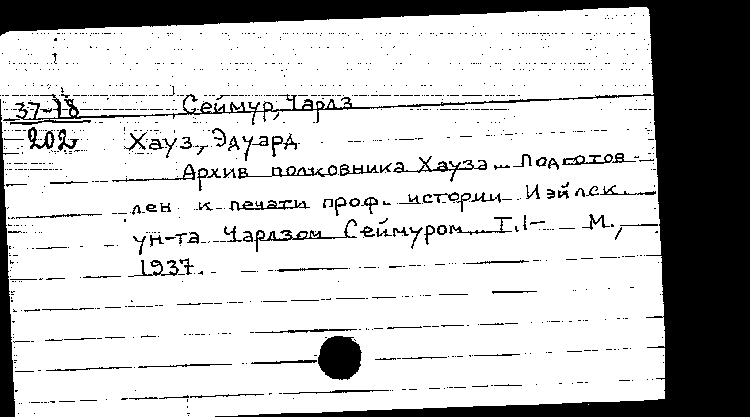 37-18 Сеймур, Чарлз
202 Хауз, Эдуард
Архив полковника Хауза... Подготов-
лен к печати проф. истории Иэйлск.
ун-та Чарлзом Сеймуром... Т.1- М.,
1937.